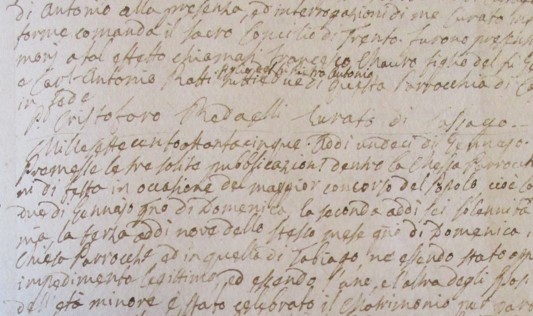 di Antonio alla presenza, ed interrogazioni di me Curato
forme comanda il sacro Concilio di Trento. furono presenti
monj a tal effetto chiamati Francesco Mauro figlio del fu
e Carl'Antonio Ratti figlio del Pietro Antonio tutti e due di questa Parrocchia di
in fede
P. Cristoforo Redaelli Curato di Cassago.
Mille settecento ottanta cinque. Addì undeci di Gennajo.
Premesse le tre solite pubblicazioni dentro la Chiesa Parrocch
ni di festa in occasione del maggior concorso del Popolo cioè la
due di Gennajo gno di Domenica, la seconda addì sei solennità
mia la terza addì nove dello stesso mese gno di Domenica,
Chiesa Parrocch. ed in quella di ne essendo stato opp
impedimento legittimo, ed essendo l'une, e l'altra degli Spos
dell'età minore è stato celebrato il Matrimonio